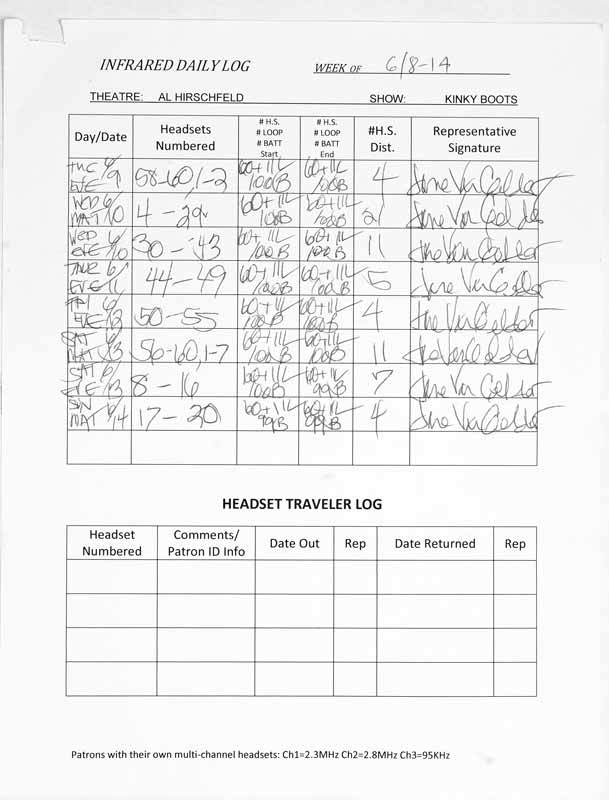 INFRARED DAILY LOG WEEK OF 6/8-14
THEATRE: AL HIRSCHFELD SHOW: KINKY BOOTS
Day/Date Headsets Numbered # H.S. # LOOP # BATT Start # H.S. # LOOP # BATT End #H.S. Dist. Representative Signature
TUE 6/9 EVE 58-60,1-2 60+11L/100B 60+11L/100B 4
WED 6/10 MAT 4-29 60+11L/100B 60+11L/100B 21
WED 6/10 EVE 30-43 60+11L/100B 60+11L/100B 11
THUR 6/11 EVE 44-49 60+11L/100B 60+11L/100B 5
FRI EVE 50-55 60+11L/100B 60+11L/100B 4
SAT MAT 6/13 56-60,1-7 60+11L/100B 60+11L/100B 11
SAT 6/13 EVE 8-16 60+11L/100B 60+11L 99B 7
SUN MAT 6/14 17-20 60+11L 99B 60+11L 99B 4
HEADSET TRAVELER LOG
Headset Numbered Comments/ Patron ID Info Date Out Rep Date Returned Rep
Patrons with their own multi-channel headsets: Ch1=2.3MHz Ch2=2.8MHz Ch3=95KHz